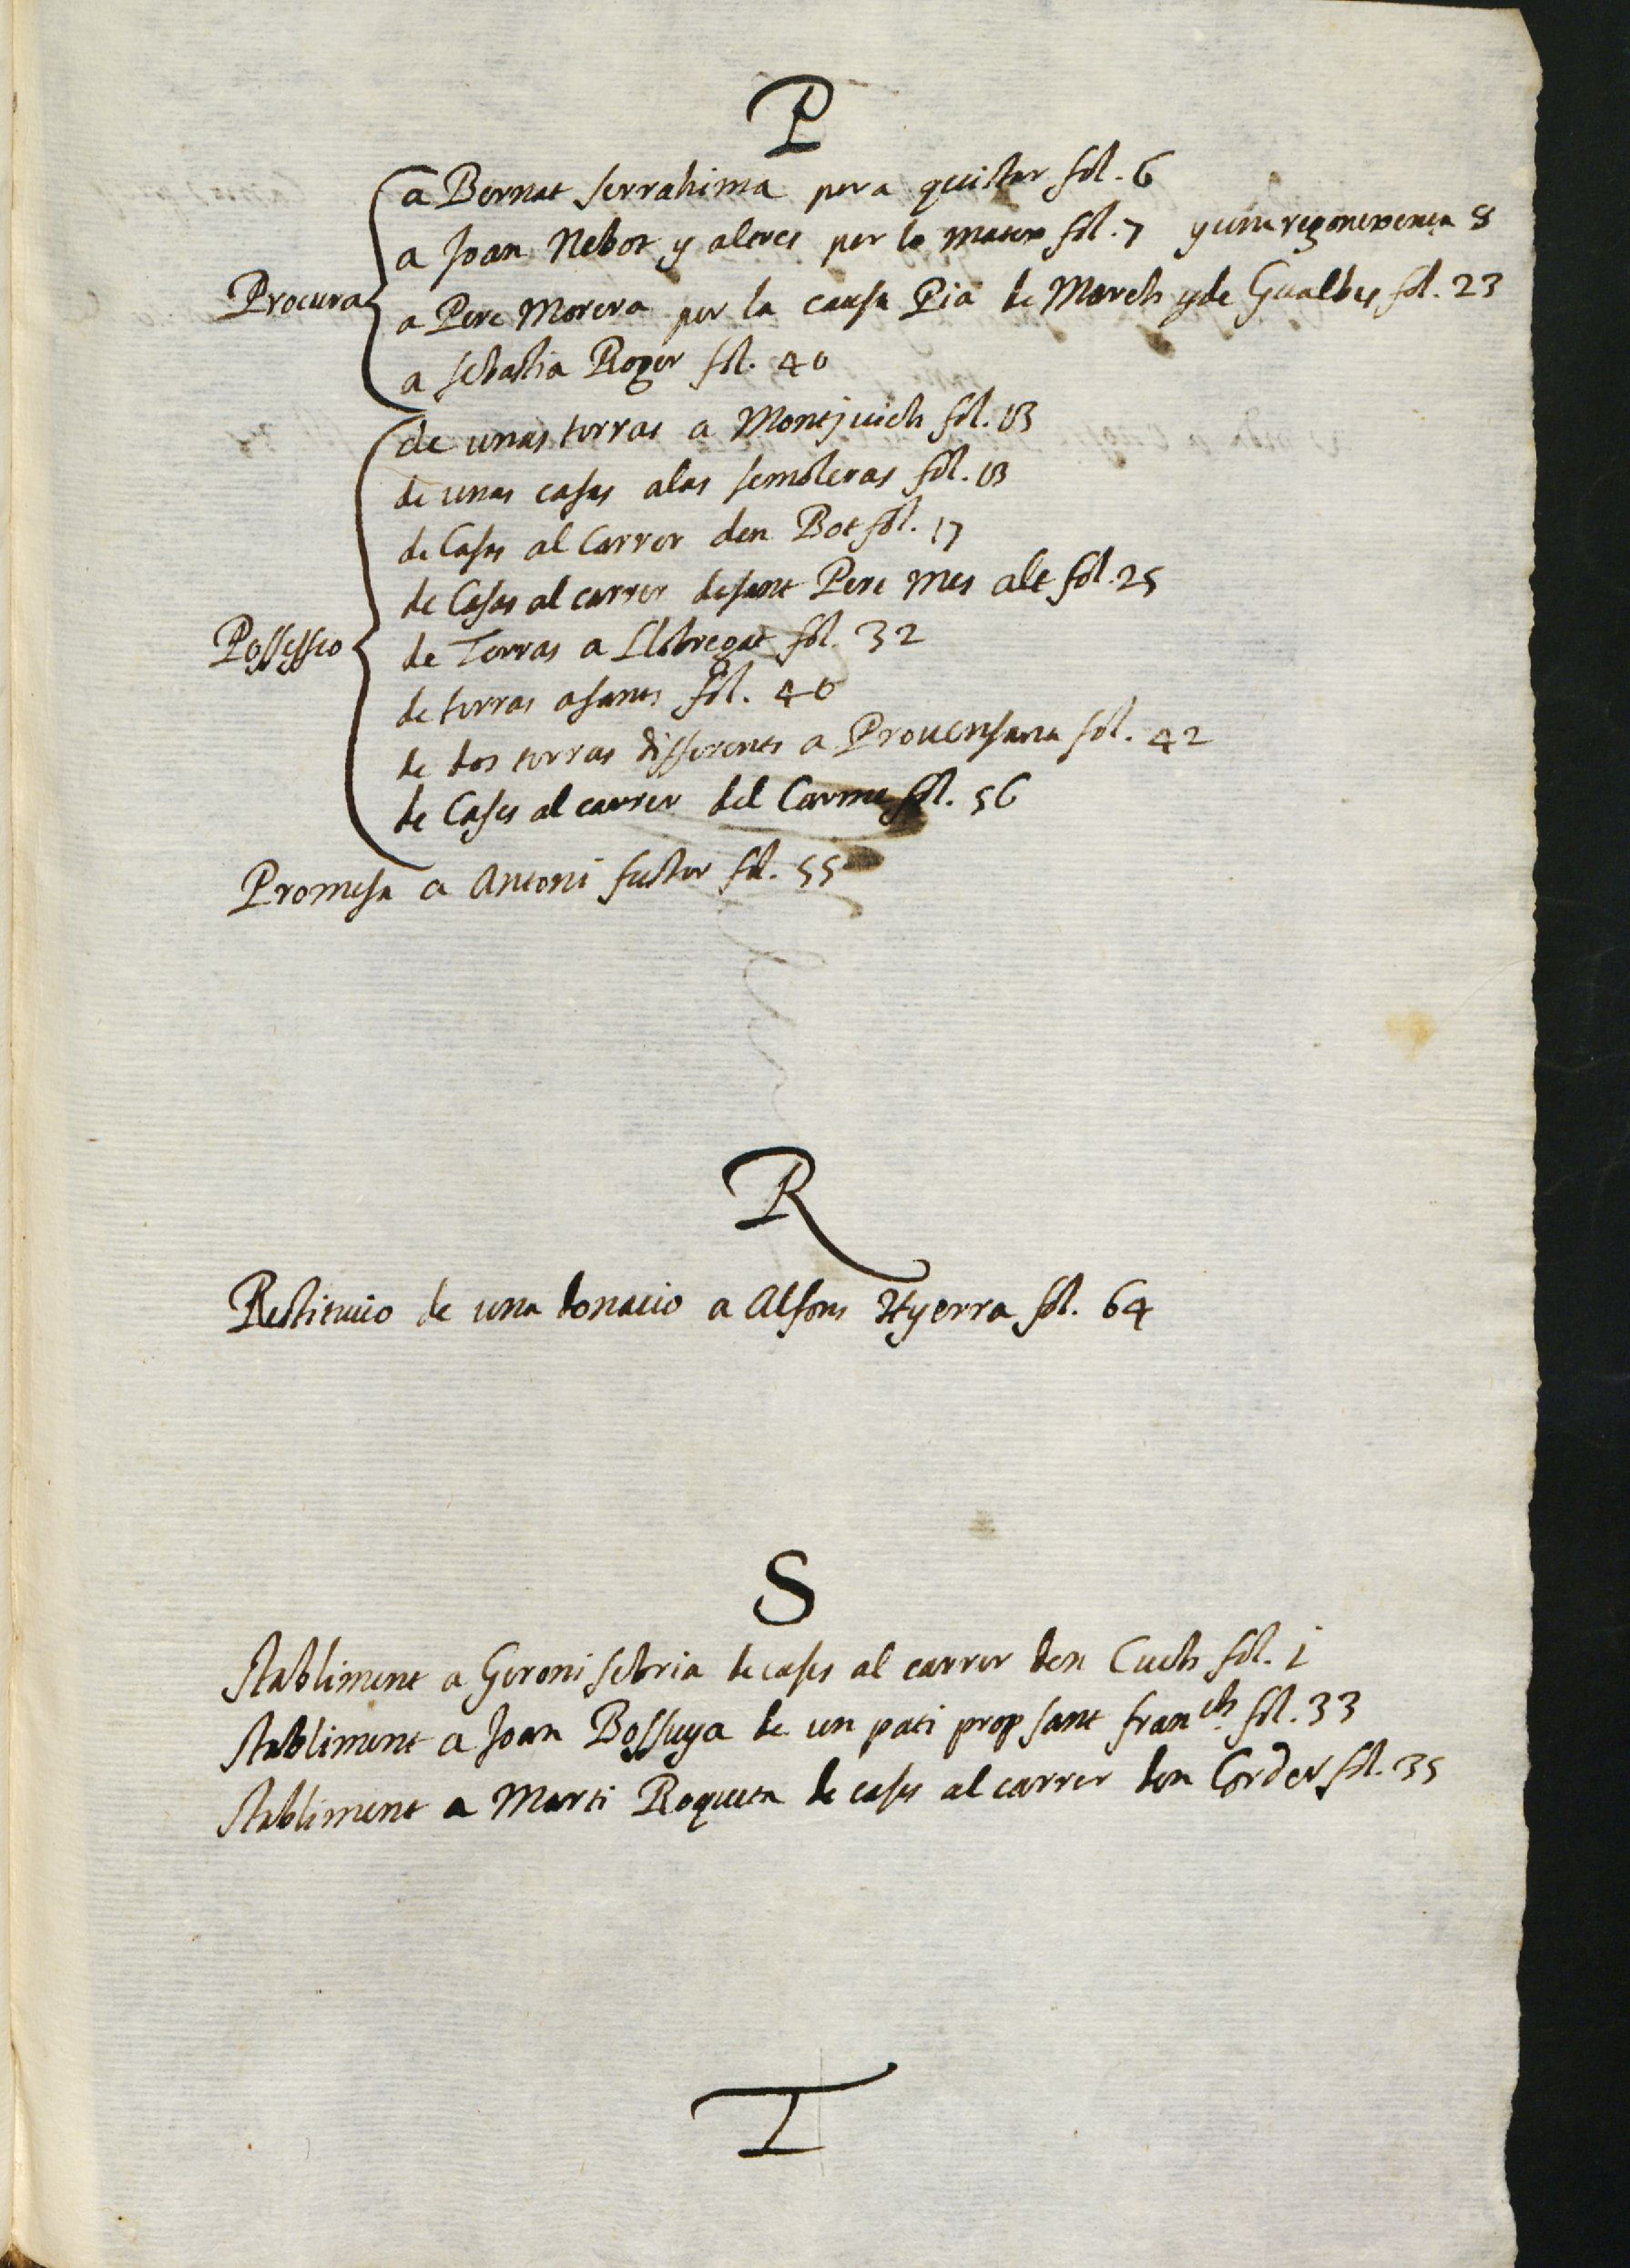 P
Procura
a Bernat serrahima pera quistar fol. 6
a Joan Nebot y altres per lo mateix fol. 7 y una regonexenca 8
a Pere Morera per la causa Pia de March y de Gualbes fol. 23
a sebastia Roger fol. 40
Possessio
de unas terras a Montjuich fol. 13
de unas casas a las semoleras fol. 13
de Casas al Carrer den Bot fol. 17
de Casas al carrer de sant Pere mes alt fol. 25
de Terras a Llobregat fol. 32
de terras a sants fol. 40
de dos terras differents a Provensana fol. 42
de Cases al carrer del Carme fol. 56
Promesa a Antoni fuster fol. 55
R
Restitucio de una donacio a Alfons Hyerra fol. 64
S
Stabliment a Geroni sebria de cases al carrer den Cuch fol. 1
Stabliment a Joan Bossuya de un pati prop sant fran.ch fol. 33
Stabliment a Marti Roqueta de cases al carrer den Corder fol. 35
T